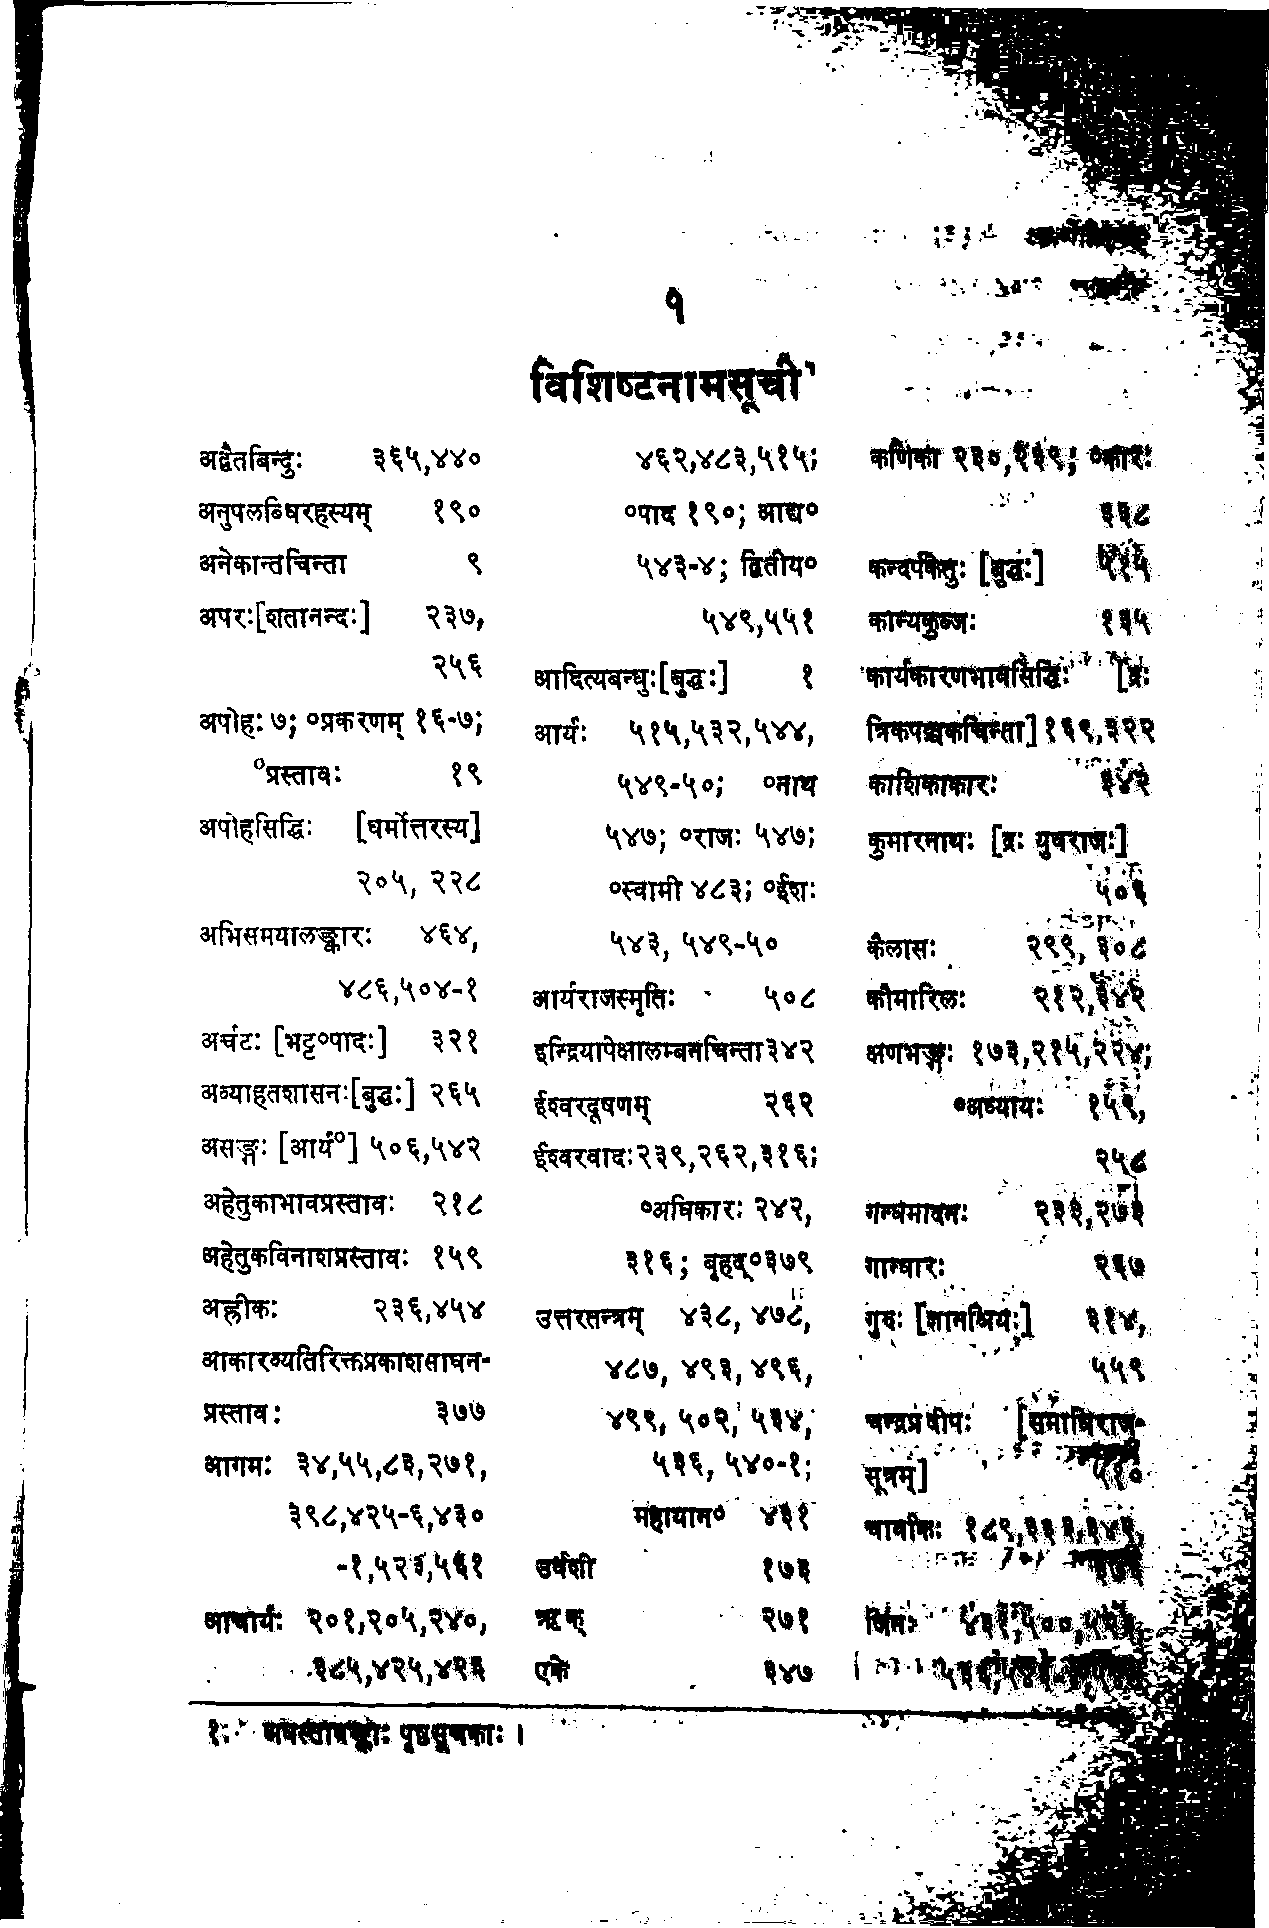 १
विशिष्टनामसूची१
अद्वैतबिन्दुः ३६५,४४०
अनुपलब्धिरहस्यम् १९०
अनेकान्तचिन्ता ९
अपरः[शतानन्दः] २३७,
२५६
अपोहः ७; ०प्रकरणम् १६-७;
०प्रस्तावः १९
अपोहसिद्धिः [धर्मोत्तरस्य]
२०५, २२८
अभिसमयालङ्कारः ४६४,
४८६,५०४-१
अर्चटः [भट्ट०पादः] ३२१
अव्याहतशासनः[बुद्धः] २६५
असङ्गः [आर्य०] ५०६,५४२
अहेतुकाभावप्रस्तावः २१८
अहेतुकविनाशप्रस्तावः १५९
अह्रीकः २३६,४५४
आकारव्यतिरिक्तप्रकाशसाधन-
प्रस्तावः ३७७
आगमः ३४,५५,८३,२७१,
३९८,४२५-६,४३०
-१,५२३,५५१
आचार्यः २०१,२०५,२४०,
३८५,४२५,४२३
४६२,४८३,५१५;
०पाद १९०; आद्य०
५४३-४; द्वितीय०
५४९,५५१
आदित्यबन्धुः[बुद्धः] १
आर्यः ५१५,५३२,५४४,
५४९-५०; ०नाथ
५४७; ०राजः ५४७;
०स्वामी ४८३; ०ईशः
५४३, ५४९-५०
आर्यराजस्मृतिः ५०८
इन्द्रियापेक्षालम्बनचिन्ता३४२
ईश्वरदूषणम् २६२
ईश्वरवादः२३९,२६२,३१६;
०अधिकारः २४२,
३१६; बृहद्०३७९
उत्तरतन्त्रम् ४३८, ४७८,
४८७, ४९३, ४९६,
४९९, ५०२, ५३४,
५३६, ५४०-१;
महायान० ४३१
उर्वशी १७३
ऋक् २७१
एके ३४७
कणिका २३०,२३९; ०कारः
३३८
कन्दर्पकेतुः [बुद्धः] ५१५
कान्यकुब्जः १३५
कार्यकारणभावसिद्धिः [द्रः
त्रिकपञ्चकचिन्ता]१६९,३२२
काशिकाकारः ३४२
कुमारनाथः [द्रः युवराजः]
५०६
कैलासः २९९, ३०८
कौमारिलः २१२,३४२
क्षणभङ्गः १७३,२१५,२२४;
०अध्यायः १५९,
२५८
गन्धमादनः २३३,२७३
गान्धारः २६७
गुरुः [ज्ञानश्रियः] ३१४,
५५९
चन्द्रप्रदीपः [समाधिराज-
सूत्रम्] ५१०
चार्वाकः १८९,३३३,३४२,
जिनः ४३१,५००,
१. अधस्तादङ्काः पृष्ठसूचकाः ।